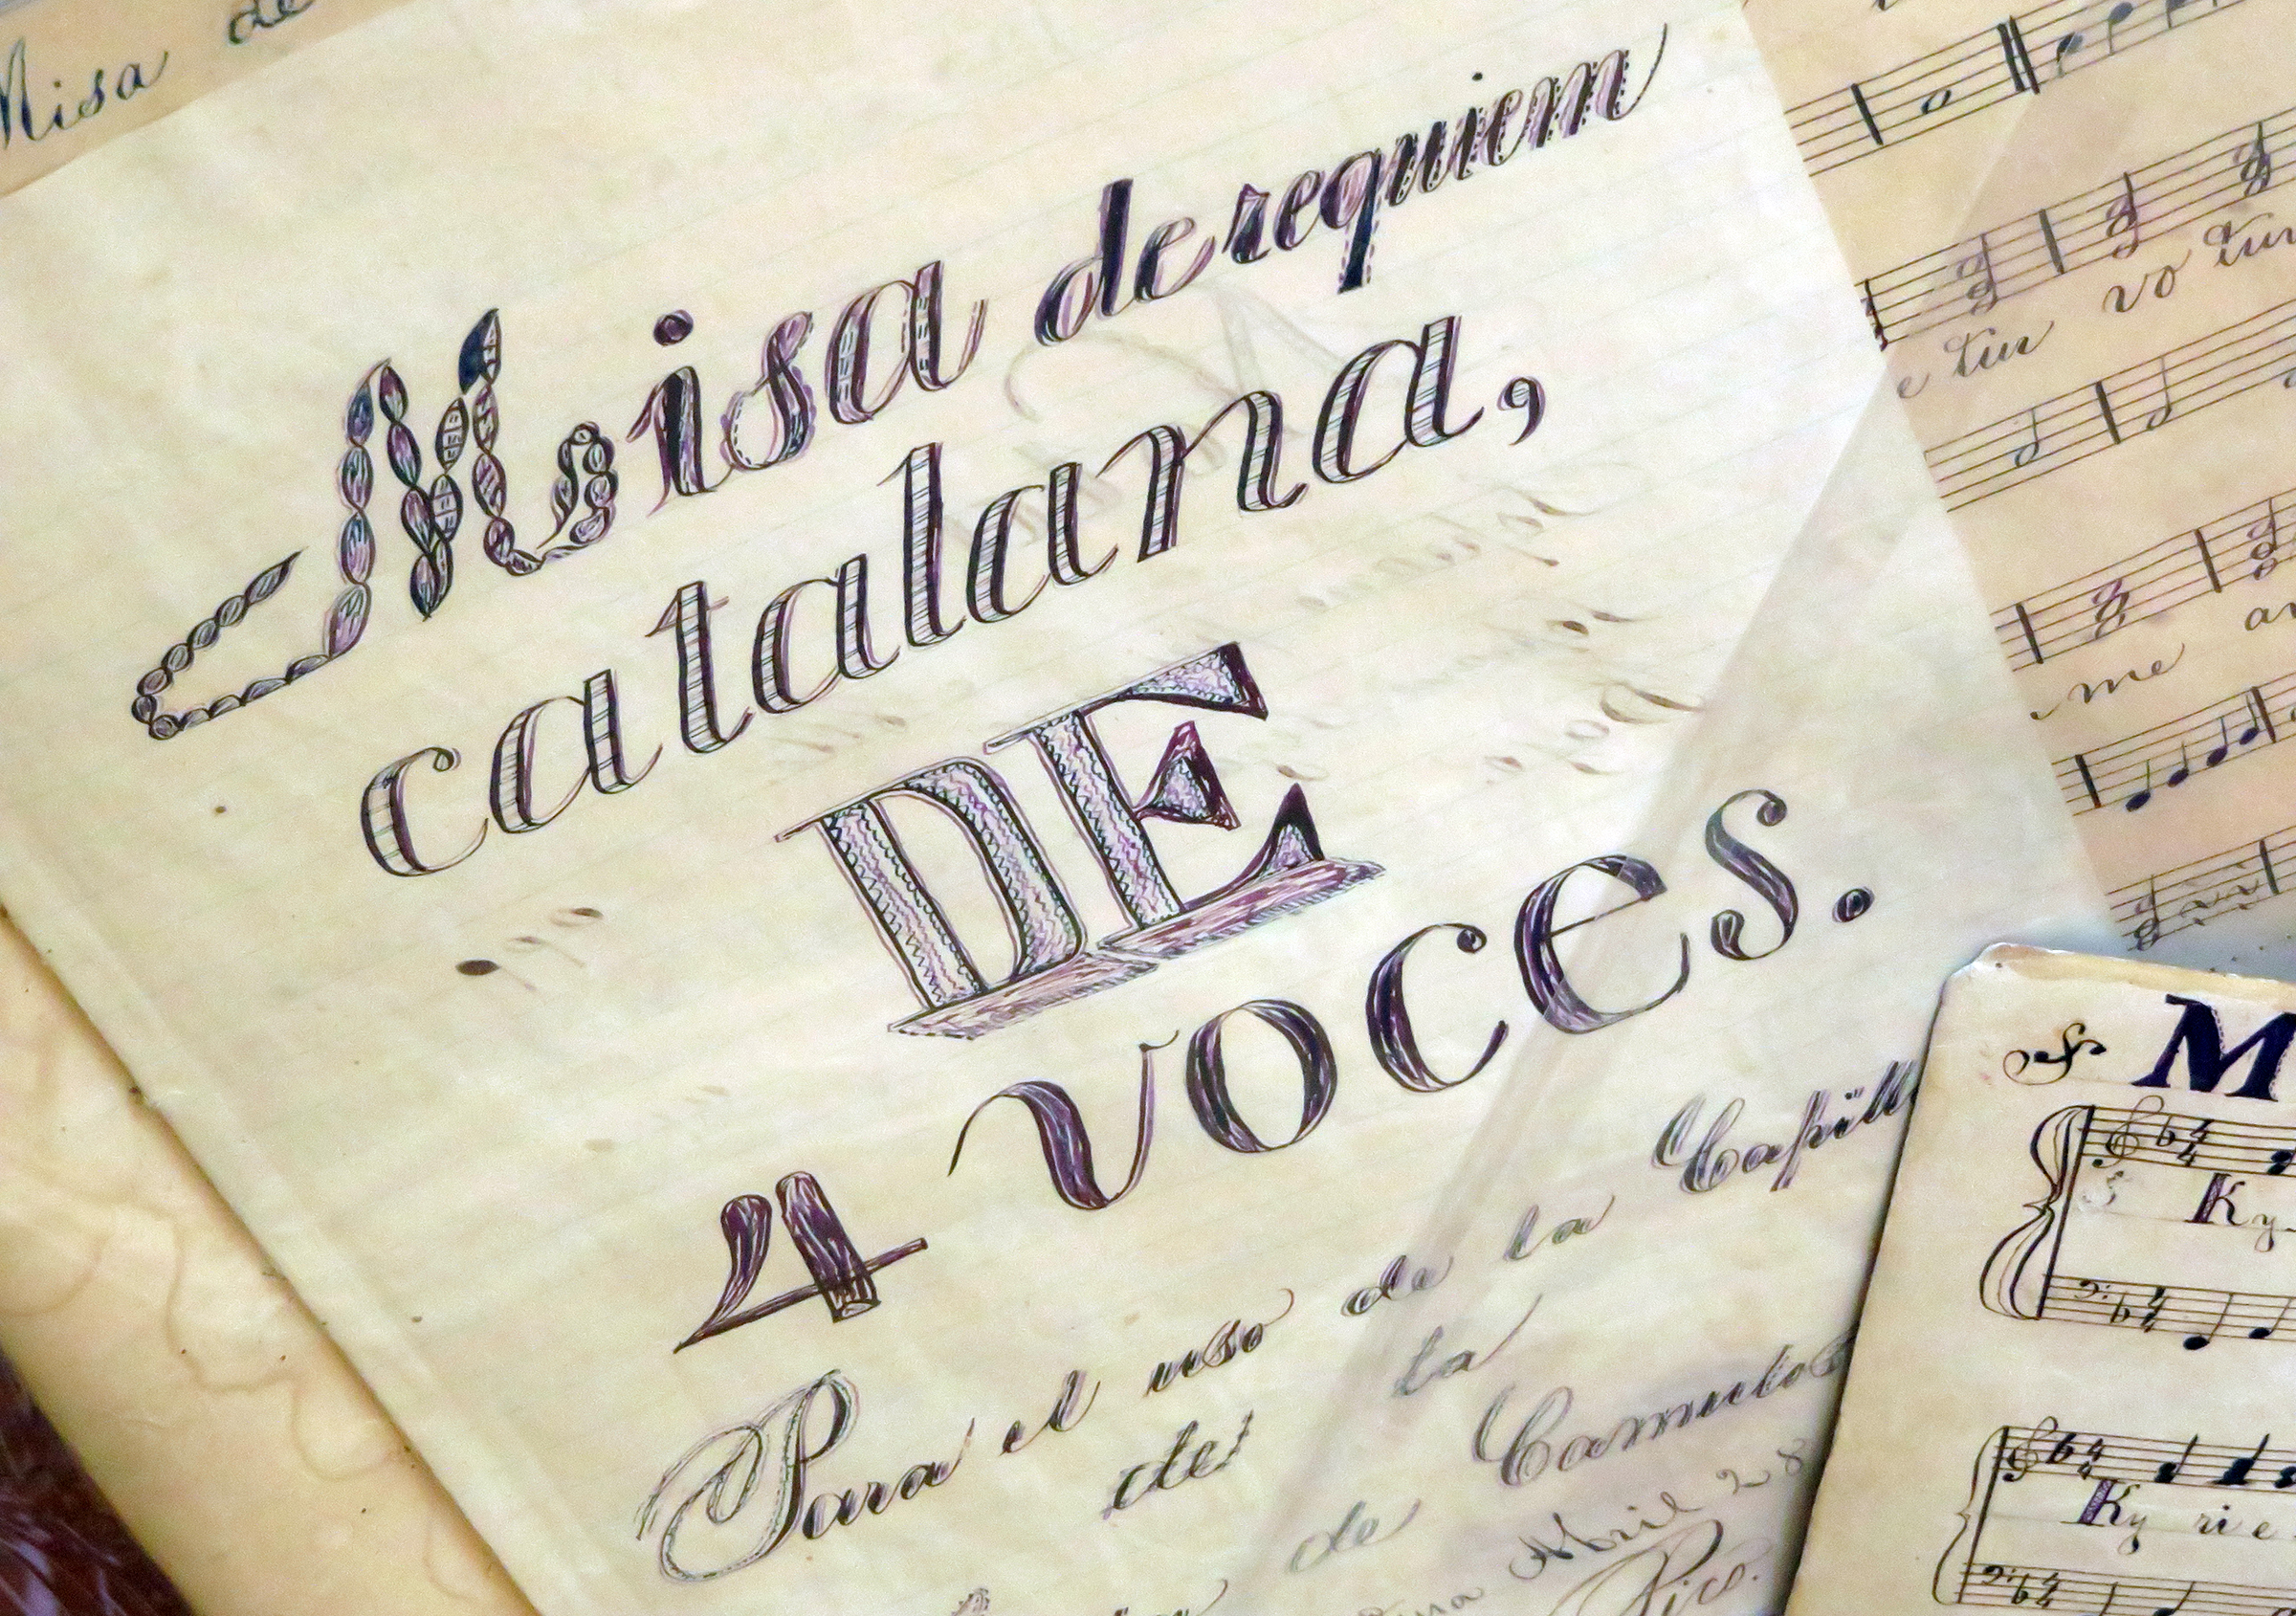 Misa de
Misa de requiem
catalana,
DE
4 voces.
Para el uso de la
de la
de Camulos
Abril 28
Pico.
tur vo tur
me
M
Ky
Ky rie